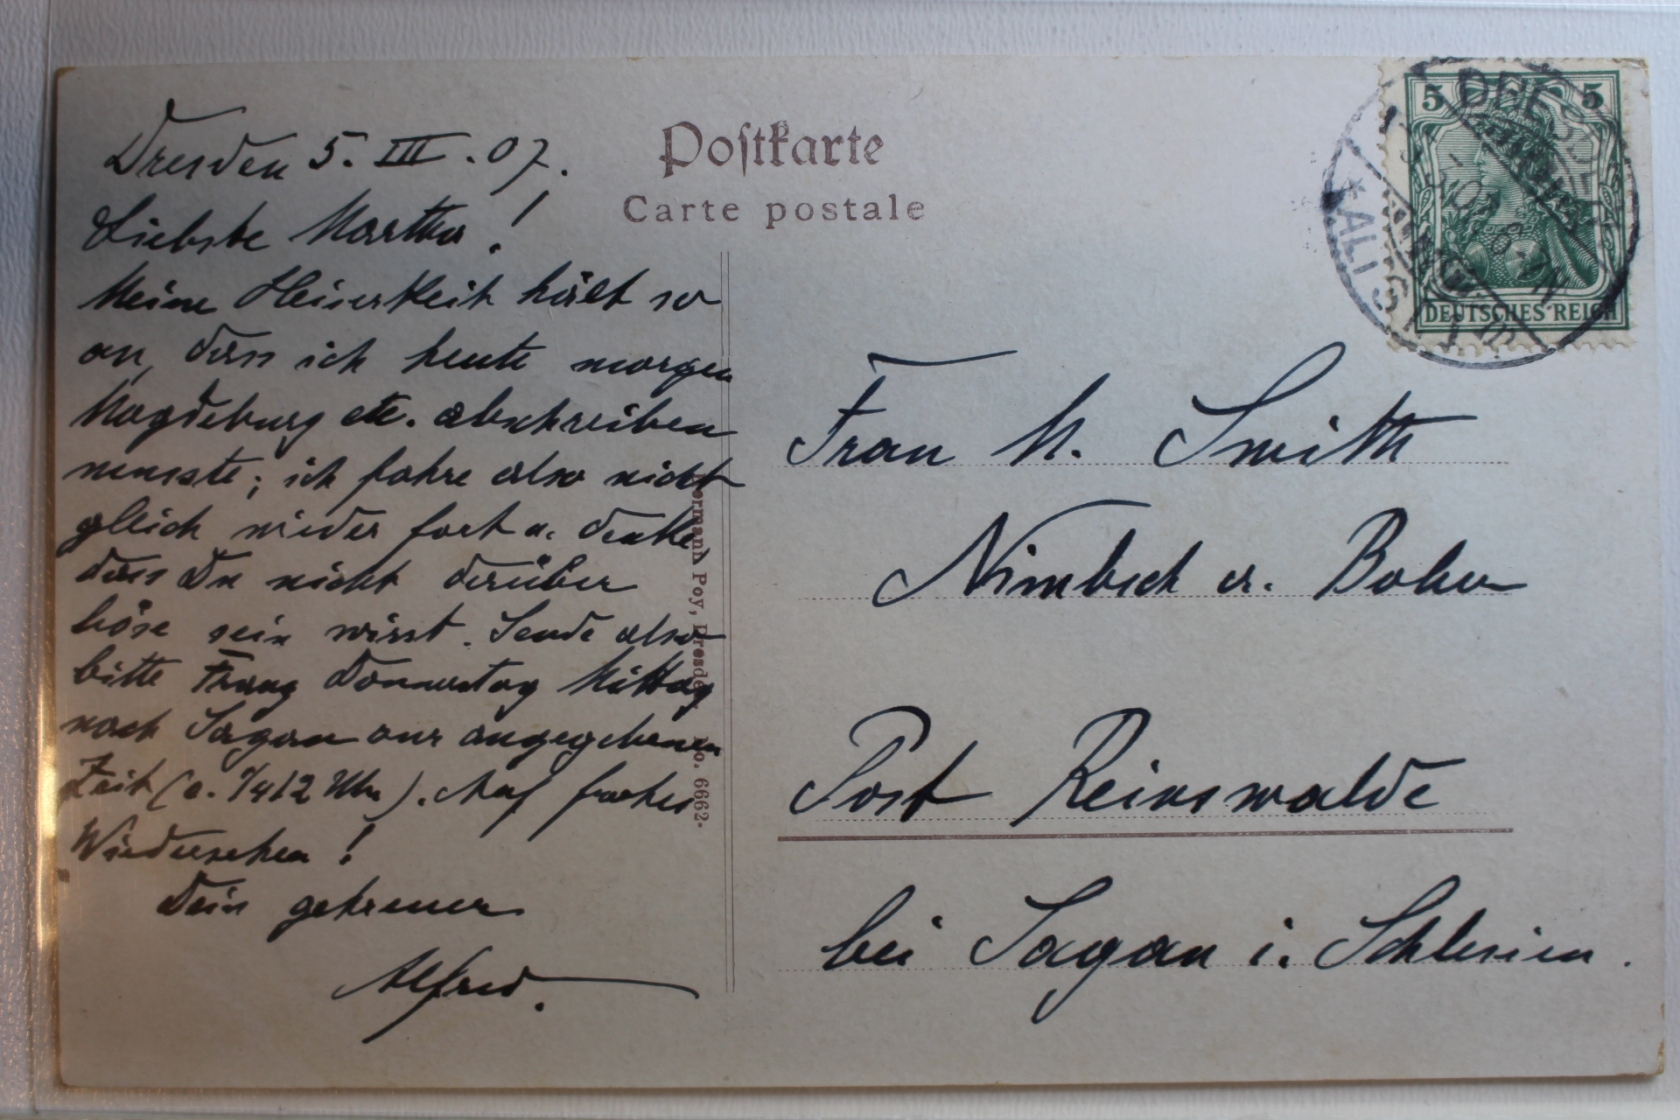 Dresden 5. III. 07.
Liebste Martha!
Meine Heiserkeit hält so
an, dass ich heute morgen
Magdeburg etc. abschreiben
musste; ich fahre also nicht
gleich wieder fort u. denke,
dass Du nicht darüber
böse sein wirst. Sende also
bitte Franz Donnerstag Mittag
nach Sagan zur angegebenen
Zeit (c. 1/4 12 Uhr). Auf frohes
Wiedersehen!
Dein getreuer
Alfred.
Postkarte
Carte postale
ermann Poy, Dresden No. 6662.
5 5
DEUTSCHES REICH
DRESDEN
* ALTST.
Frau M. Smith
Nimbsch a. Bober
Post Reinswalde
bei Sagan i. Schlesien.